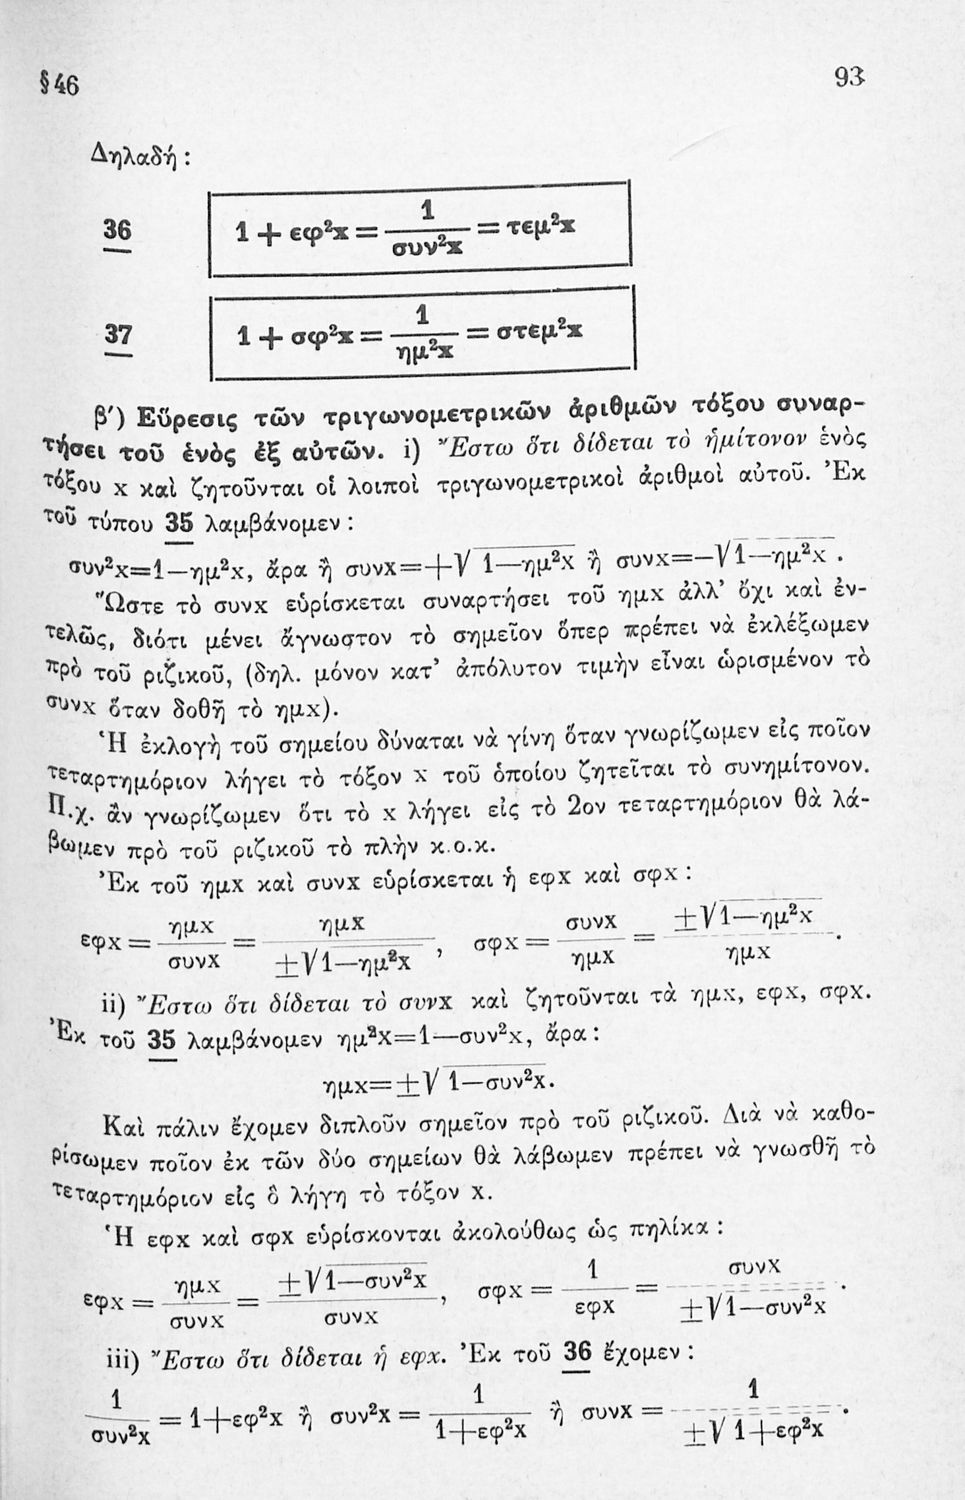 § 46 93
Δηλαδή :
36 1 + εφ²x = 1/συν²x = τεμ²x
37 1 + σφ²x = 1/ημ²x = στεμ²x
β′) Εὕρεσις τῶν τριγωνομετρικῶν ἀριθμῶν τόξου συναρ-
τήσει τοῦ ἑνὸς ἐξ αὐτῶν. i) Ἔστω ὅτι δίδεται τὸ ἡμίτονον ἑνὸς
τόξου x καὶ ζητοῦνται οἱ λοιποὶ τριγωνομετρικοὶ ἀριθμοὶ αὐτοῦ. Ἐκ
τοῦ τύπου 35 λαμβάνομεν :
συν²x=1—ημ²x, ἄρα ἢ συνx=+√1—ημ²x ἢ συνx=—√1—ημ²x .
Ὥστε τὸ συνx εὑρίσκεται συναρτήσει τοῦ ημx ἀλλ’ ὄχι καὶ ἐν-
τελῶς, διότι μένει ἄγνωστον τὸ σημεῖον ὅπερ πρέπει νὰ ἐκλέξωμεν
πρὸ τοῦ ριζικοῦ, (δηλ. μόνον κατ’ ἀπόλυτον τιμὴν εἶναι ὡρισμένον τὸ
συνx ὅταν δοθῇ τὸ ημx).
Ἡ ἐκλογὴ τοῦ σημείου δύναται νὰ γίνῃ ὅταν γνωρίζωμεν εἰς ποῖον
τεταρτημόριον λήγει τὸ τόξον x τοῦ ὁποίου ζητεῖται τὸ συνημίτονον.
Π.χ. ἂν γνωρίζωμεν ὅτι τὸ x λήγει εἰς τὸ 2ον τεταρτημόριον θὰ λά-
βωμεν πρὸ τοῦ ριζικοῦ τὸ πλὴν κ.ο.κ.
Ἐκ τοῦ ημx καὶ συνx εὑρίσκεται ἡ εφx καὶ σφx :
εφx = ημx/συνx = ημx/±√1—ημ²x , σφx = συνx/ημx = ±√1—ημ²x/ημx .
ii) Ἔστω ὅτι δίδεται τὸ συνx καὶ ζητοῦνται τὰ ημx, εφx, σφx.
Ἐκ τοῦ 35 λαμβάνομεν ημ²x=1—συν²x, ἄρα :
ημx=±√1—συν²x.
Καὶ πάλιν ἔχομεν διπλοῦν σημεῖον πρὸ τοῦ ριζικοῦ. Διὰ νὰ καθο-
ρίσωμεν ποῖον ἐκ τῶν δύο σημείων θὰ λάβωμεν πρέπει νὰ γνωσθῇ τὸ
τεταρτημόριον εἰς ὃ λήγῃ τὸ τόξον x.
Ἡ εφx καὶ σφx εὑρίσκονται ἀκολούθως ὡς πηλίκα :
εφx = ημx/συνx = ±√1—συν²x/συνx , σφx = 1/εφx = συνx/±√1—συν²x .
iii) Ἔστω ὅτι δίδεται ἡ εφx. Ἐκ τοῦ 36 ἔχομεν :
1/συν²x = 1+εφ²x ἢ συν²x = 1/1+εφ²x ἢ συνx = 1/±√1+εφ²x .